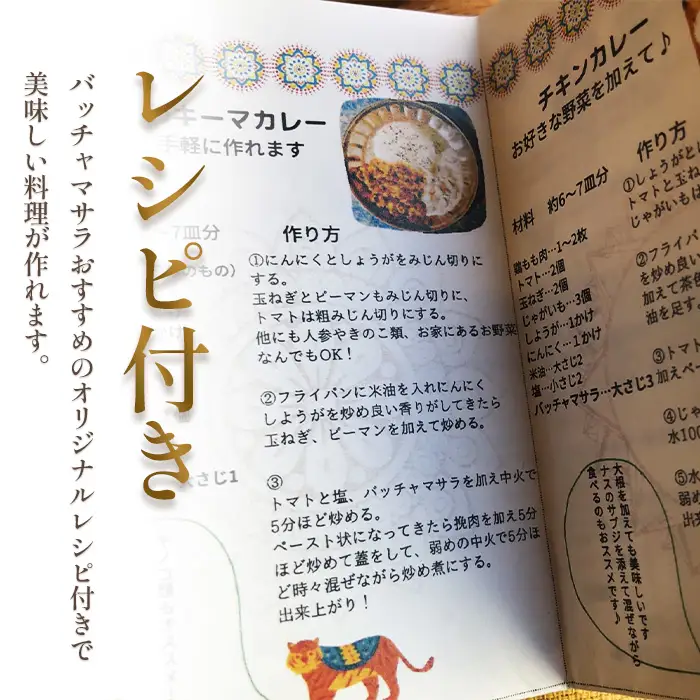 レシピ付き
バッチャマサラおすすめのオリジナルレシピ付きで
美味しい料理が作れます。
キーマカレー
手軽に作れます
~7皿分
のもの)
作り方
①にんにくとしょうがをみじん切りに
する。
玉ねぎとピーマンもみじん切りに、
トマトは粗みじん切りにする。
他にも人参やきのこ類、お家にあるお野菜
なんでもOK！
②フライパンに米油を入れにんにく
しょうがを炒め良い香りがしてきたら
玉ねぎ、ピーマンを加えて炒める。
大さじ1
③
トマトと塩、バッチャマサラを加え中火で
5分ほど炒める。
ペースト状になってきたら挽肉を加え5分
ほど炒めて蓋をして、弱めの中火で5分ほ
ど時々混ぜながら炒め煮にする。
出来上がり！
チキンカレー
お好きな野菜を加えて♪
材料 約6~7皿分
鶏もも肉…1~2枚
トマト…2個
玉ねぎ…2個
じゃがいも…3個
しょうが…1かけ
にんにく…1かけ
米油…大さじ2
塩…小さじ2
バッチャマサラ…大さじ3
作り方
①しょうがとに
トマトと玉ね
じゃがいもは
②フライパン
を炒め良い
加えて茶色
油を足す。
③トマト
加えペー
④じゃ
水100
⑤水
弱め
出
大根を加えても美味しいです
ナスのサブジを添えて混ぜながら
食べるのもおススメです♪